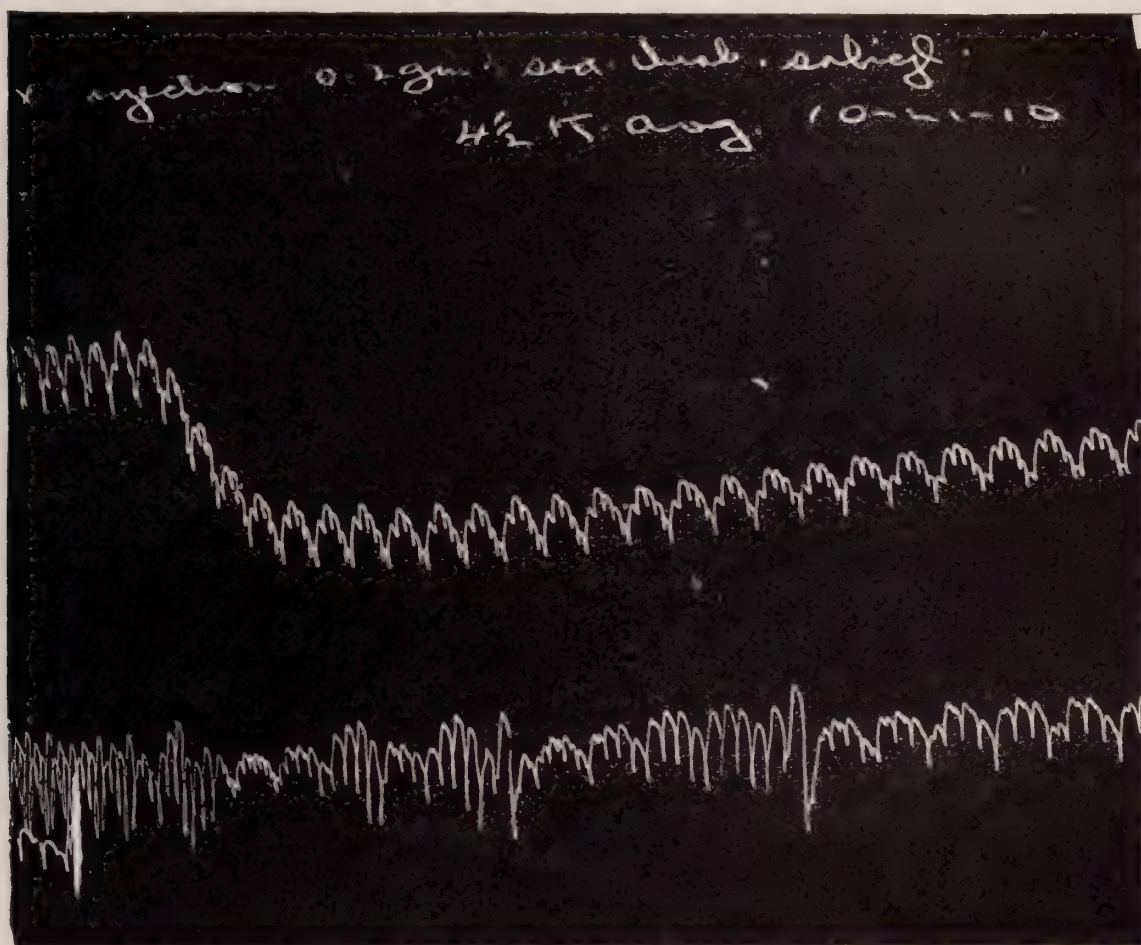 x injection 0.2 gm sod. salicyl
4½ K. dog 10-21-10